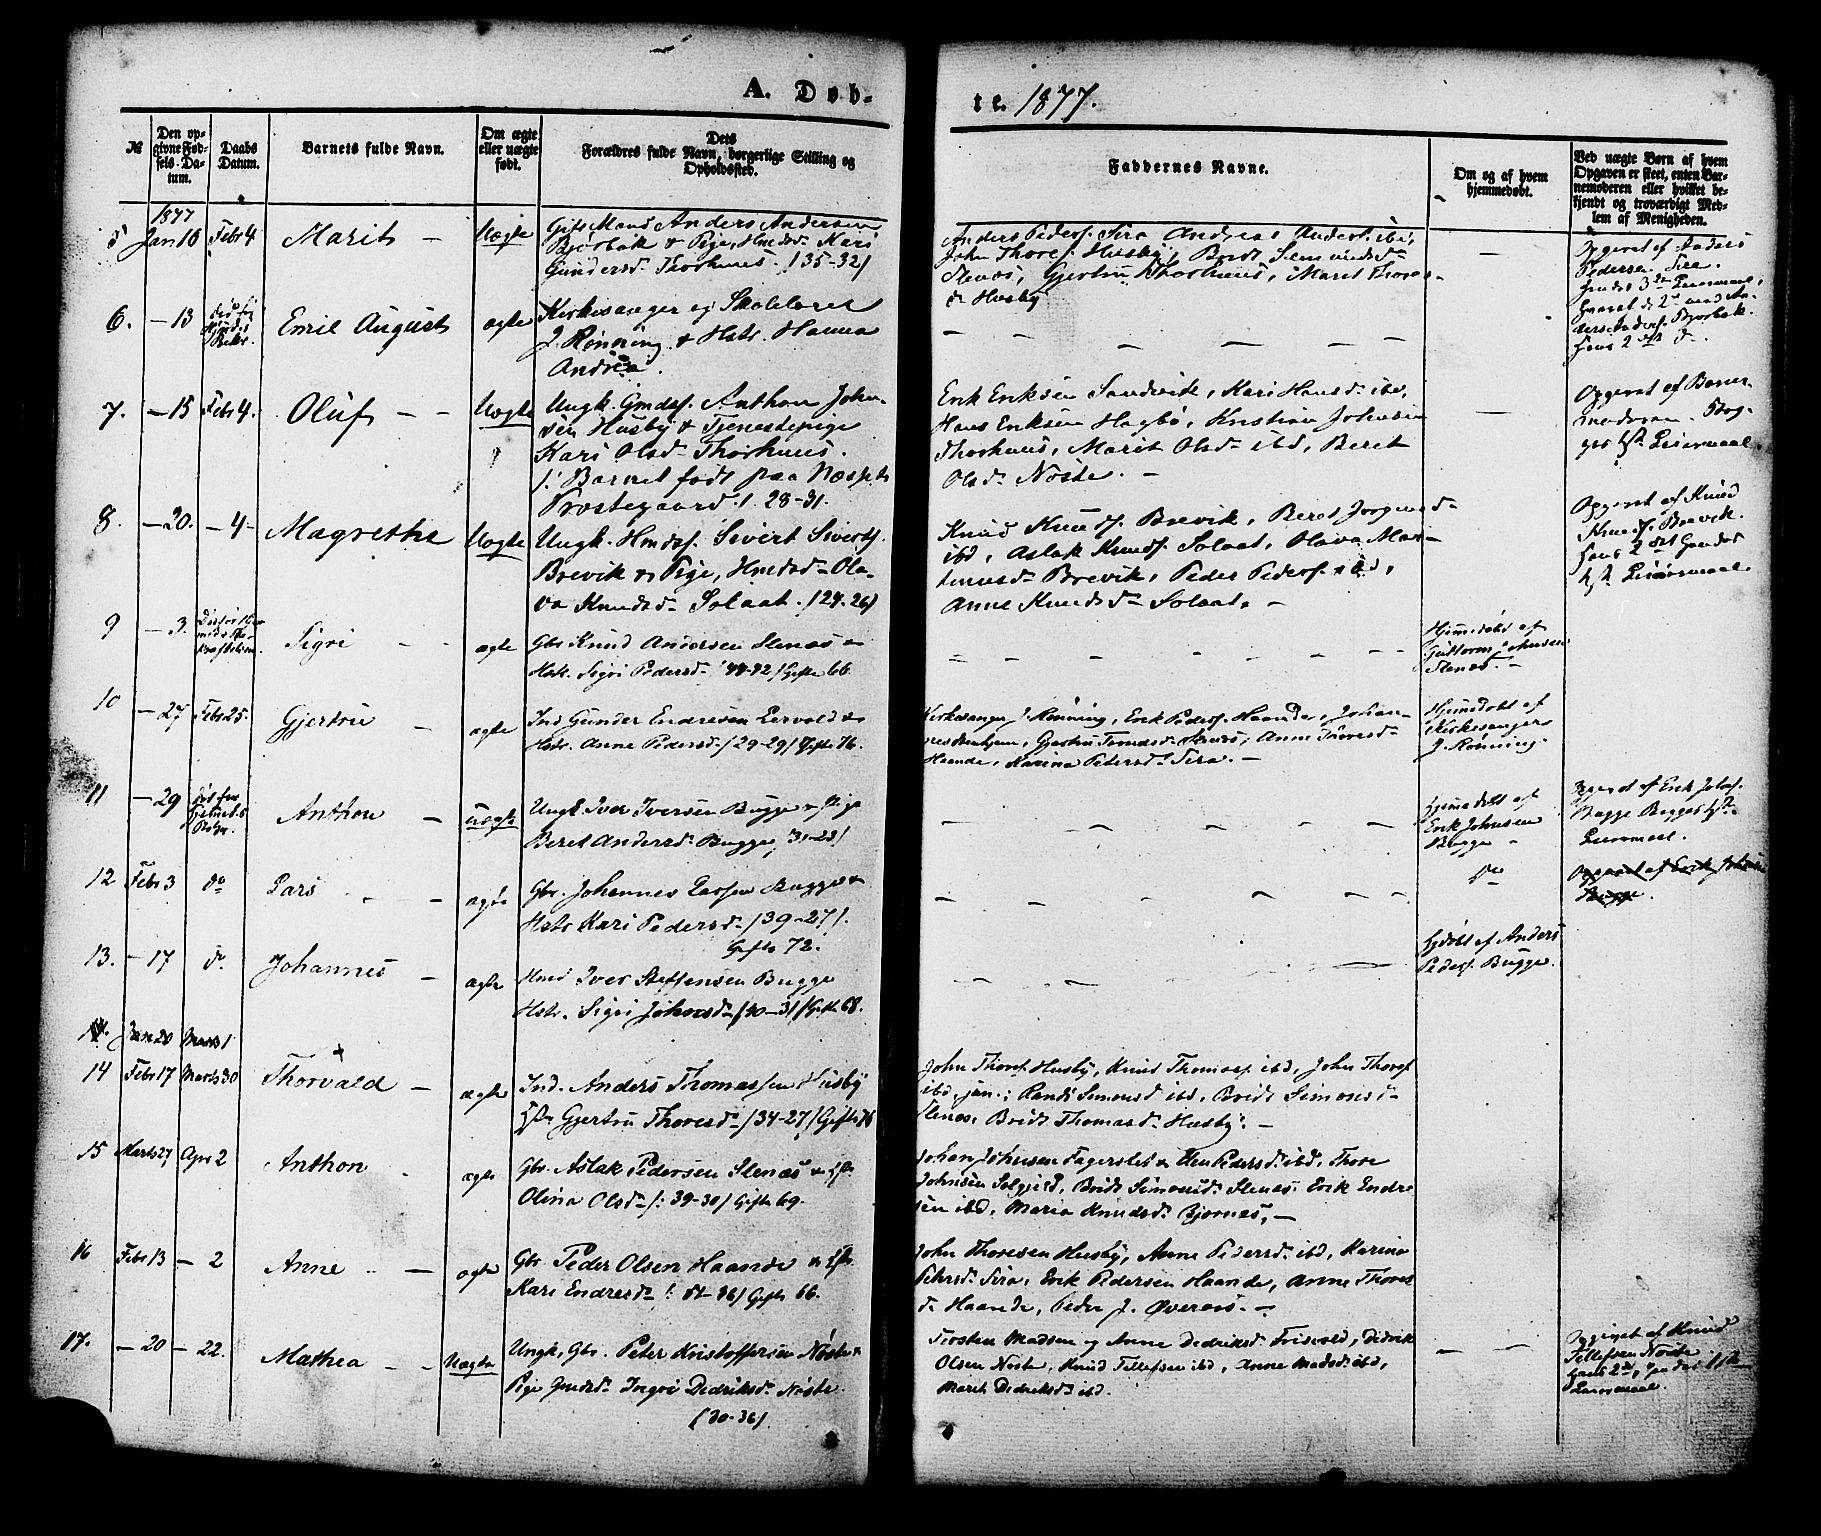 A. Døb-
te. 1877.
№
Den op-
givne Fød-
sels-Da-
tum.
Daabs
Datum.
Barnets fulde Navn.
Om ægte
eller uægte
født.
Dets
Forældres fulde Navn, borgerlige Stilling og
Opholdssted.
Faddernes Navne.
Om og af hvem
hjemmedøbt.
Ved uægte Børn af hvem
Opgaven er skeet, enten Bar-
nemoderen eller hvilket be-
kjendt og troværdigt Med-
lem af Menigheden.
1877
5 Jan 16 Febr 4 Marit — Uægte
Gift Mand Anders Andersen
Bjørbak & Pige, Hmdsd. Kari
Gundersd. Thorhuus. /35-32/
Anders Peders. Sira Andreas Anders. ibd,
John Thores. Husby, Brit Simonsd.
Stenæs, Gjertru Thorhuus, Marit Thores-
d. Husby
Opgivet af Anders
Pedersen Sira.
6. — 13 Emil August ægte
Kirkesanger og Skolelærer
J. Rønning & Hstr. Hanna
Andrea.
7. — 15 Febr 4. Oluf — — Uægte
Ungk. Gmds. Anthon John-
sen Husby & Tjenestepige
Kari Olsd. Thorhuus.
/: Barnet født paa Næssets
Præstegaard :/ 28-31.
Erik Eriksen Sandvik, Kari Hansd. ibd,
Hans Eriksen Hagbø, Kristian Johnsen
Thorhuus, Marit Olsd. ibd, Beret
Olsd. Nöste. —
Opgivet af Barne-
moderen. Beg-
ges 1ste Leiermaal.
8. — 20. — 4 — Magrethe Uægte
Ungk. Hmds. Sivert Siverts.
Brevik & Pige, Hmdsd. Ola-
va Knudsd. Solaat. /24-26/
Knud Knuds. Brevik, Beret Jørgensd.
ibd, Aslak Knuds. Solaat, Olava Mar-
tinusd. Brevik, Peder Peders. ibd,
Anne Knudsd. Solaat. —
Opgivet af Knud
Knuds. Brevik.
Hans 2det hendes
1ste Leiermaal
9 — 3. Sigri — — ægte
Gbr. Knud Andersen Stenæs &
Hstr. Sigri Pedersd. /44-42/ Gifte 66.
Hjemdøbt af
Guttorm Johnsen
Stenæs. —
10 — 27 Febr 25. Gjertru — ægte
Ind. Gunder Endresen Lervold &
Hstr. Anne Pedersd. /29-29/ Gifte 76.
Kirkesanger J. Rønning, Erik Peders. Haande, Johan-
Gjertru Tomasd. Stenæs, Anne Thoresd.
Haande, Karina Petersd. Sira. —
Hjemdøbt af
Kirkesanger
J. Rønning.
11 — 29 Anthon — uægte
Ungk. Iver Iversen Bugge & Pige
Beret Andersd. Bugge, 31-28/
Hjemdøbt af
Erik Johnsen
Bugge
Opgivet af Erik Johns.
Bugge Begges 1ste
Leiermaal.
12 Febr 3 do Lars — — ægte
Gbr. Johannes Larsen Bugge &
Hstr Kari Pedersd. /39-27/.
Gifte 72.
do
Opgivet af Erik Johnsen
Bugge.
13. — 17 do. Johannes — ægte
Hmd Iver Steffensen Bugge
Hstr. Sigri Johnsd. /40-31/ Gifte 68.
Hjdøbt af Anders
Peders. Bugge.
14. Jan 20 Marts 1
14 Febr 17 Marts 30 Thorvald — ægte
Ind. Anders Thomassen Husby
Hstr Gjertru Thoresd. /34-27/ Gifte 76
John Thores. Husby, Knud Thomas. ibd, John Thores.
ibd, jun.; Randi Simonsd. ibd, Brit Simonsd.
Stenæs, Brit Thomasd. Husby. —
15 Marts 27 Apr 2 Anthon — ægte
Gbr. Aslak Pedersen Stenæs & Hstr.
Olina Olsd. /: 39-38/ Gifte 69.
Johan Johnsen Fagerslet & Elen Pedersd. ibd, Thore
Johnsen Solgjerd, Brit Simonsd. Stenæs, Erik Endre-
sen ibd, Maria Knudsd. Bjørnæs, —
16 Febr 13 — 2 Anne — — ægte
Gbr. Peder Olsen Haande & Hstr.
Kari Endresd. /: 51-36/ Gifte 66.
John Thoresen Husby, Anne Pedersd. ibd, Karina
Petersd. Sira, Erik Pedersen Haande, Anne Thores
d. Haande, Peder J. Øveraas. —
17. — 20 — 22. Mathea — — Uægte
Ungk. Gbr. Peter Kristoffersen Nöste &
Pige Gmdsd. Ingri Didriksd. Nöste.
/30-36/
Torsten Madsen og Anne Didriksd. Frisvold, Didrik
Olsen Nöste, Knud Tellefsen ibd, Anne Madsd. ibd,
Marit Didriksd. ibd.
Opgivet af Knud
Tellefsen Nöste
Hans 2det, hendes 1ste
Leiermaal.